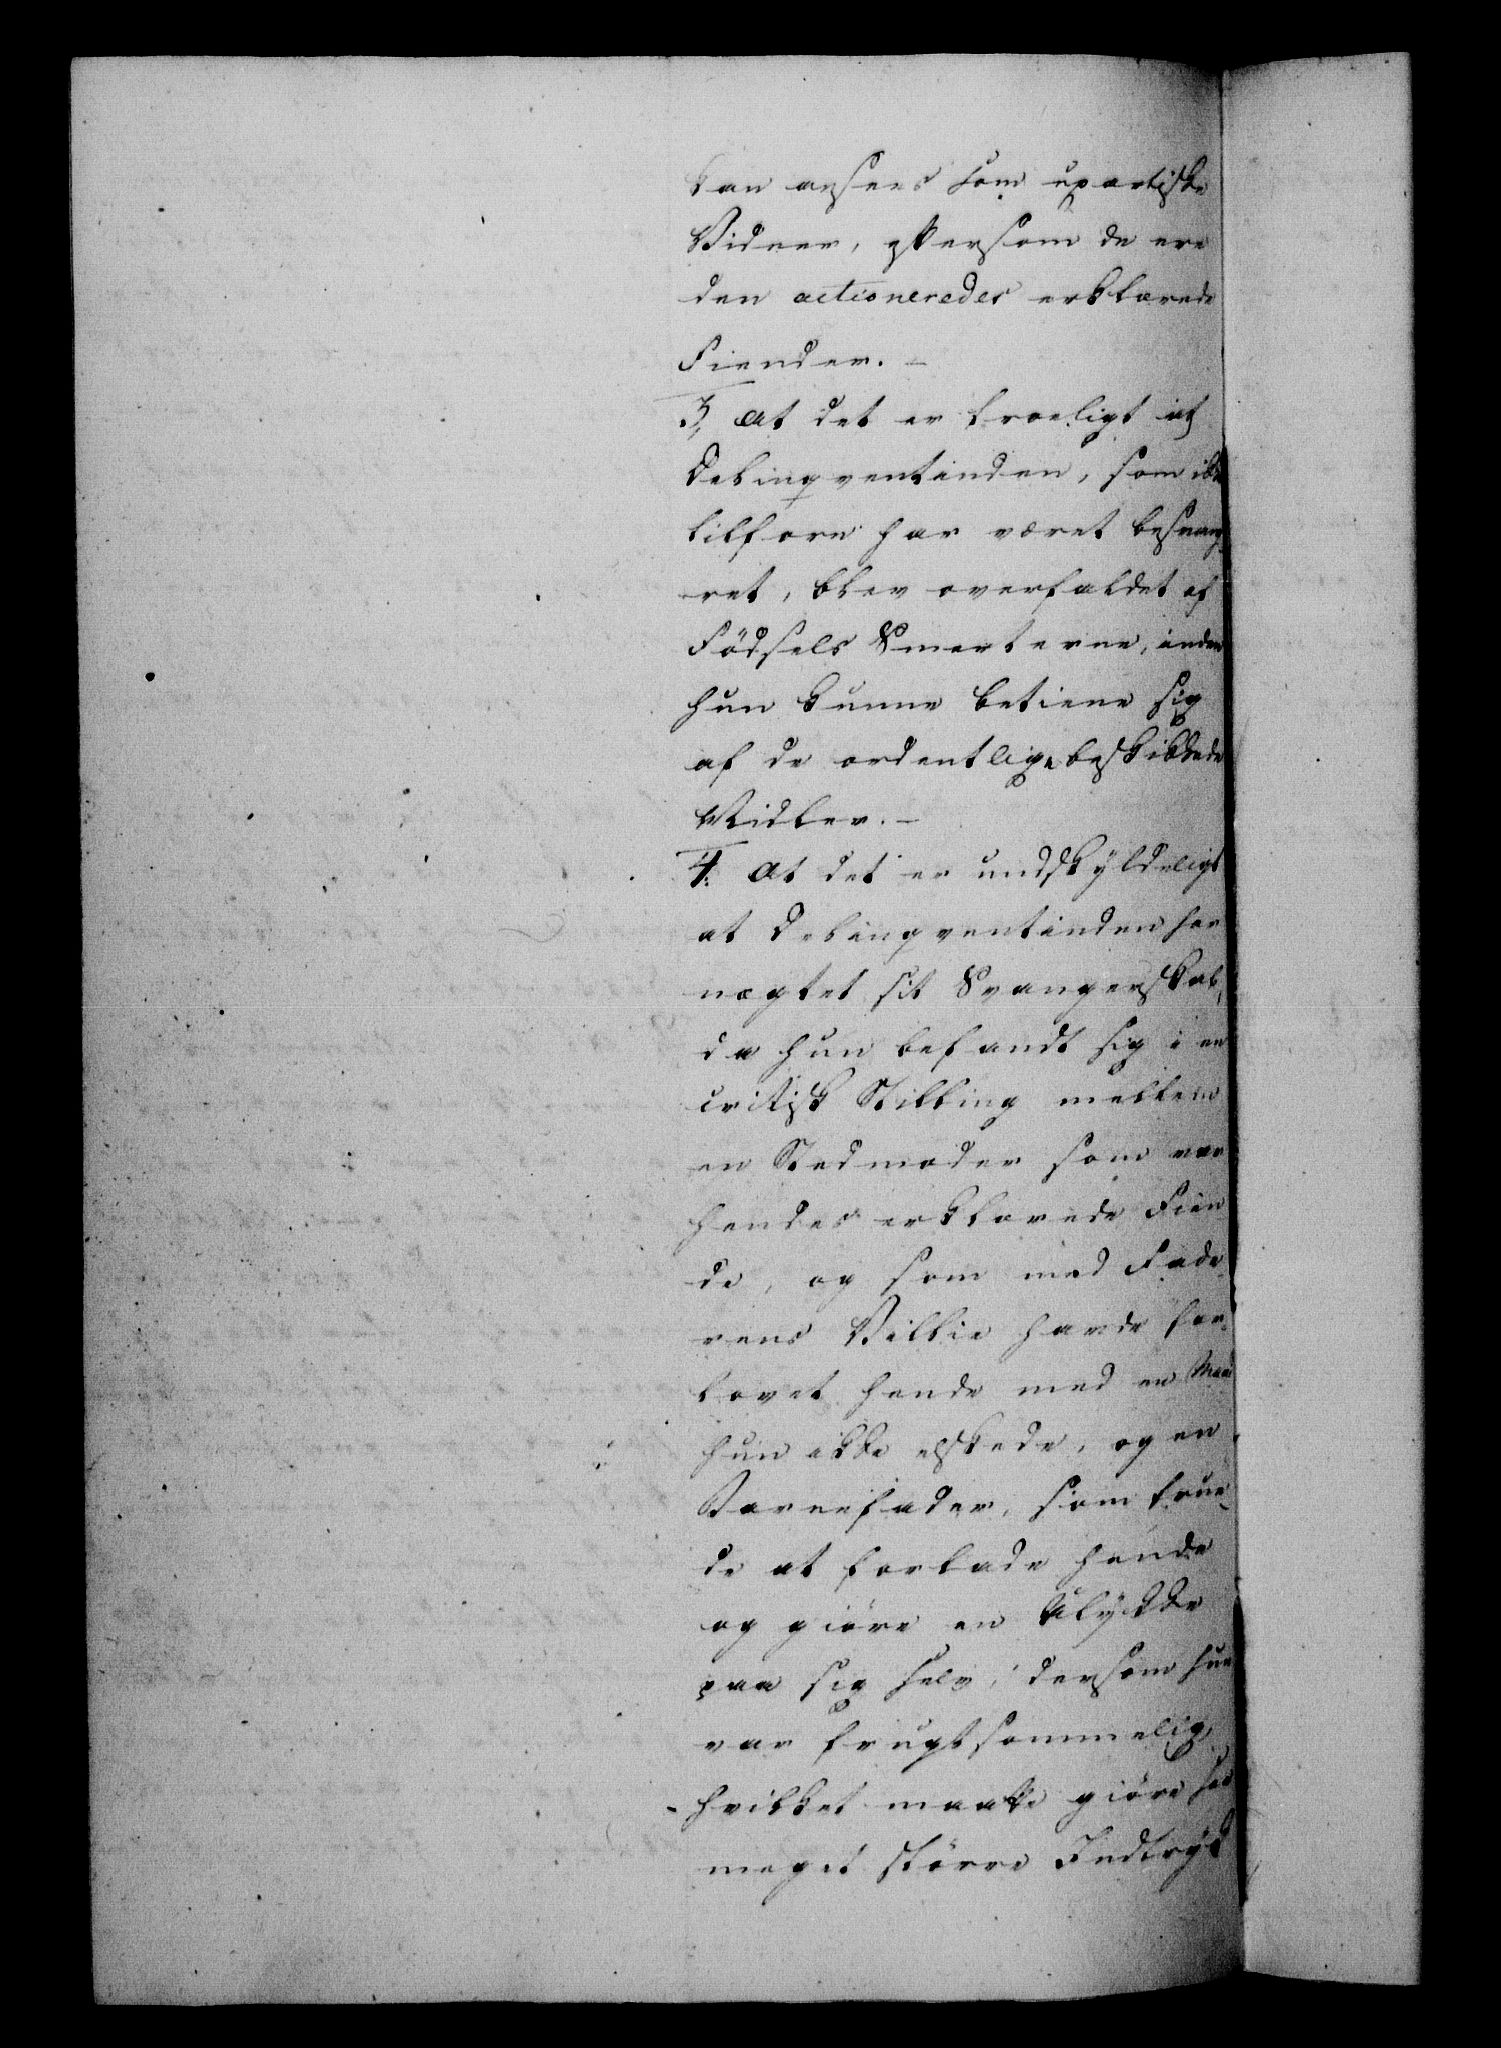 kan ansees som upartiske
Vidner, eftersom de ere
den actioneredes erklærede
Fiender. –
3, At det er troeligt at
Delinqventinden, som ikke
tilforn har været besvang-
ret, blev overfaldet af
Fødsels Smerterne, inden
hun kunne betiene sig
af de ordentlige beskikkede
Midler. –
4. At det er undskyldeligt
at Delinqventinden har
nægtet sit Svangerskab,
da hun befandt sig i en
critisk Stilling mellem
en Stedmoder som var
hendes erklærede Fien
de, og som med Fade-
rens Villie havde for-
lovet hende med en Mand
hun ikke elskede, og en
Barnefader, som true-
de at forlade hende
og giøre en Ulykke
paa sig selv, dersom hun
var frugtsommelig,
hvilket maatte giøre saa
meget större Indtryk